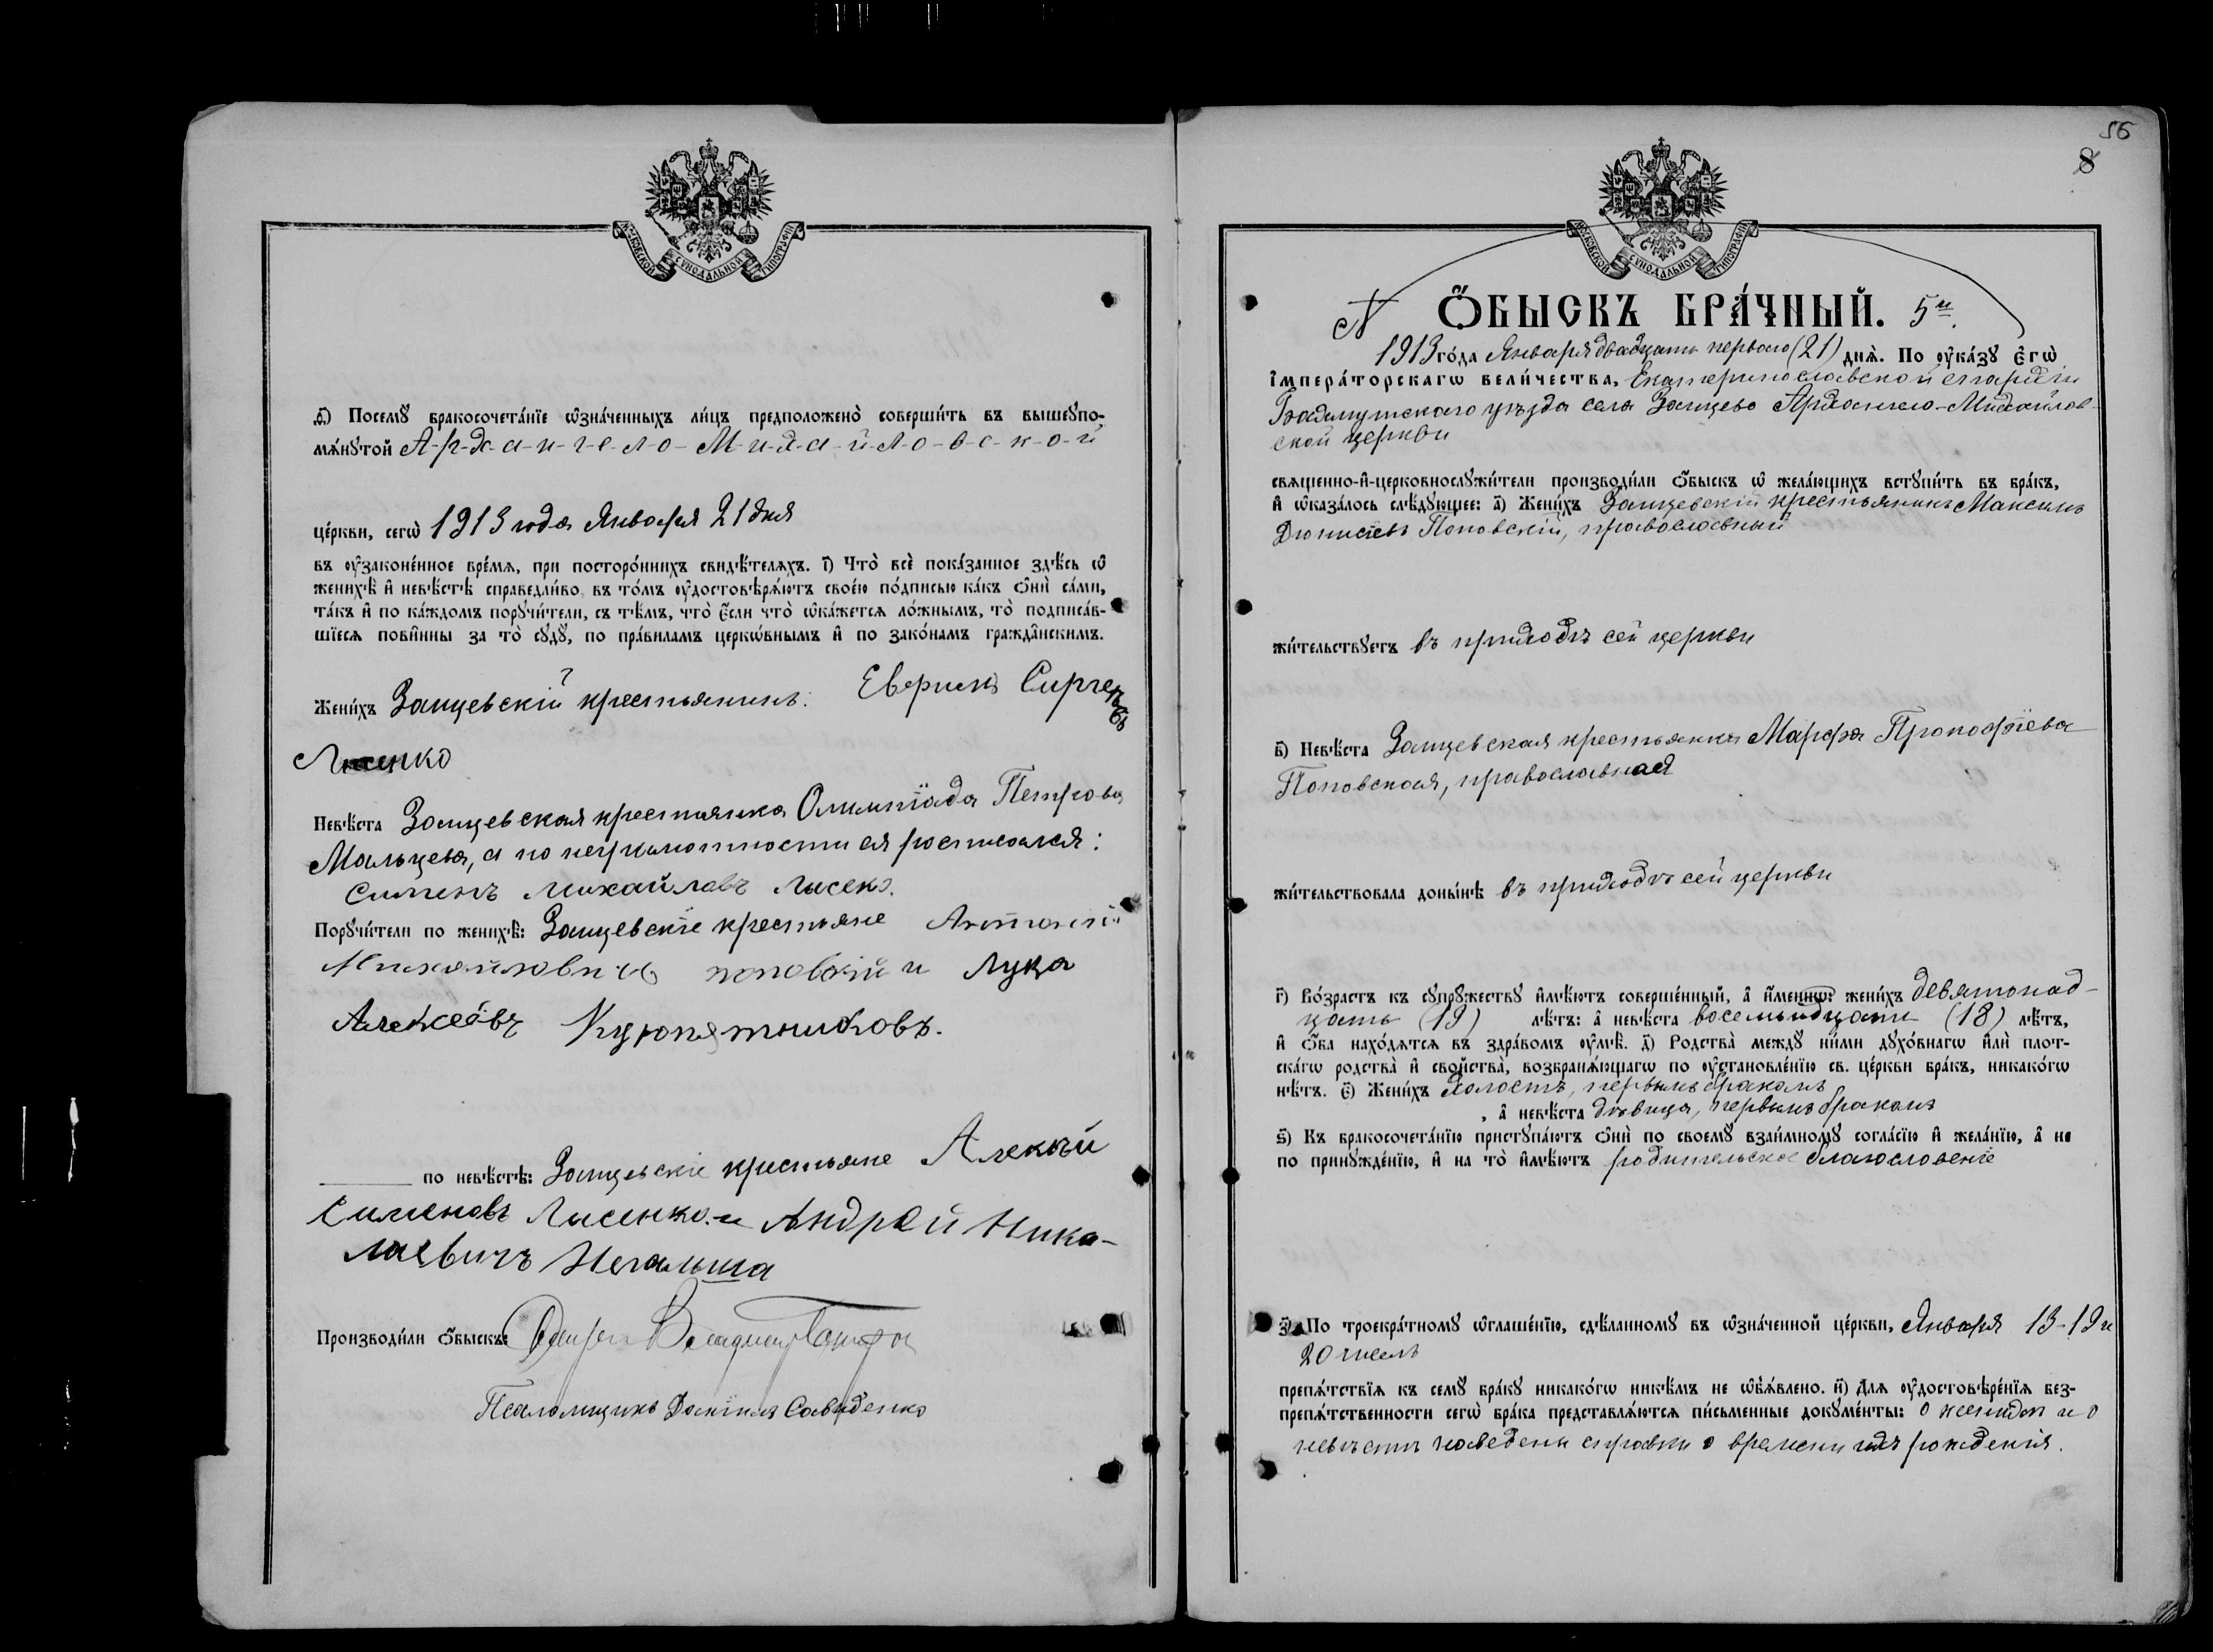 МОСКОВСКОЙ СѴНОДАЛЬНОЙ ТИПОГРАФІИ
д҃) Посемꙋ̀ бракосочета́нїе ѡ҆зна́ченныхъ ли́цъ предположено̀ соверши́ть въ вышеꙋпо-
мѧ́нꙋтой А-р-х-а-н-г-е-л-о-М-и-х-а-й-л-о-в-с-к-о-й
це́ркви, сегѡ̀ 1913 года Января 21 дня
въ ᲂу҆зако́не́нное вре́мѧ, при посторо́ннихъ свидѣ́телѧхъ. і҃) Что̀ всѐ пока́занное здѣ́сь ѡ҆
женихѣ̀ и҆ невѣ́стѣ справедли́во, въ то́мъ ᲂу҆достовѣрѧ́ютъ свое́ю по́дписью ка́къ ѻ҆нѝ са́ми,
та́къ и҆ по ка́ждомъ порꙋчи́тели, съ тѣ́мъ, что̀ є҆́сли что̀ ѡ҆ка́жетсѧ ло́жнымъ, то̀ подписа́в-
шїесѧ пови́нны за то̀ сꙋдꙋ̀, по пра́виламъ церкѡ́внымъ и҆ по зако́намъ гражда́нскимъ.
Жени́хъ Зайцевскій крестьянинъ: Сиргеевъ
Лисенко
Невѣ́ста Зайцевская крестьянка Олимпіада Петрова
Мальцева, а по неграмотности ея росписался:
Сименъ Михайлавъ Лисеко.
Порꙋчи́тели по женихѣ̀: Зайцевскіе крестьяне Антоній
Михайловичъ поповскій и Лука
Алексеевъ Куропятниковъ.
по невѣ́стѣ: Зайцевскіе крестьяне Алексѣй
Сименовъ Лисенко. и Андрей Ника-
лаевичъ Негальша
Производи́ли ѻ҆́быскъ:
Псаломщикъ Даніилъ Савиденко
56
8
МОСКОВСКОЙ СѴНОДАЛЬНОЙ ТИПОГРАФІИ
№ Ѻ҆́БЫСКЪ БРА́ЧНЫЙ. 5й.
1913 го́да Января двадцать перваго (21) днѧ̀. По ᲂу҆ка́зꙋ Є҆гѡ̀
І҆мпера́торскагѡ вели́чества, Екатеринославской епархіи
Бахмутскаго уѣзда села Зайцево Архангело-Михайлов-
ской церкви
свѧщенно-и҆-церковнослꙋжи́тели производи́ли ѻ҆́быскъ ѡ҆ жела́ющихъ встꙋпи́ть въ бра́къ,
и҆ ѡ҆каза́лось слѣ́дꙋющее: а҃) Жени́хъ Зайцевскій крестьянинъ Максимъ
Діонисіевъ Поповскій, православный
жи́тельствꙋетъ въ приходѣ сей церкви
в҃) Невѣ́ста Зайцевская крестьянка Марѳа Прокофіева
Поповская, православная
жи́тельствовала доны́нѣ въ приходѣ сей церкви
г҃) Во́зрастъ къ сꙋпрꙋжествꙋ и҆мѣ́ютъ соверше́нный, а҆ и҆́меннѡ: жени́хъ девятонад-
цать (19) лѣ́тъ: а҆ невѣ́ста восемнадцати (18) лѣ́тъ,
и҆ ѻ҆́ба нахо́дѧтсѧ въ здра́вомъ ᲂу҆мѣ̀. д҃) Родства̀ междꙋ̀ ни́ми дꙋхо́внагѡ и҆лѝ плот-
ска́гѡ родства̀ и҆ свойства̀, возбранѧ́ющагѡ по ᲂу҆становле́нїю св. це́ркви бра́къ, никако́гѡ
нѣ́тъ. є҃) Жени́хъ Холостъ, первымъ бракомъ
, а҆ невѣ́ста дѣвица, первымъ бракомъ
ѕ҃) Къ бракосочета́нїю пристꙋпа́ютъ ѻ҆нѝ по своемꙋ̀ взаи́мномꙋ согла́сїю и҆ жела́нїю, а҆ не
по принꙋжде́нїю, и҆ на то̀ и҆мѣ́ютъ родительское благословеніе
з҃) По троекра́тномꙋ ѡ҆глаше́нїю, сдѣ́ланномꙋ въ ѡ҆зна́ченной це́ркви, Января 13-19 и
20 чиселъ
препѧ́тствїѧ къ семꙋ̀ бра́кꙋ никако́гѡ никѣ́мъ не ѡ҆б̾ѧ́влено. и҃) Длѧ ᲂу҆достовѣре́нїѧ без-
препѧ́тственности сегѡ̀ бра́ка представлѧ́ютсѧ пи́сьменные докꙋме́нты: о женихѣ и о
невѣстѣ наведены справки о времени ихъ рожденія.